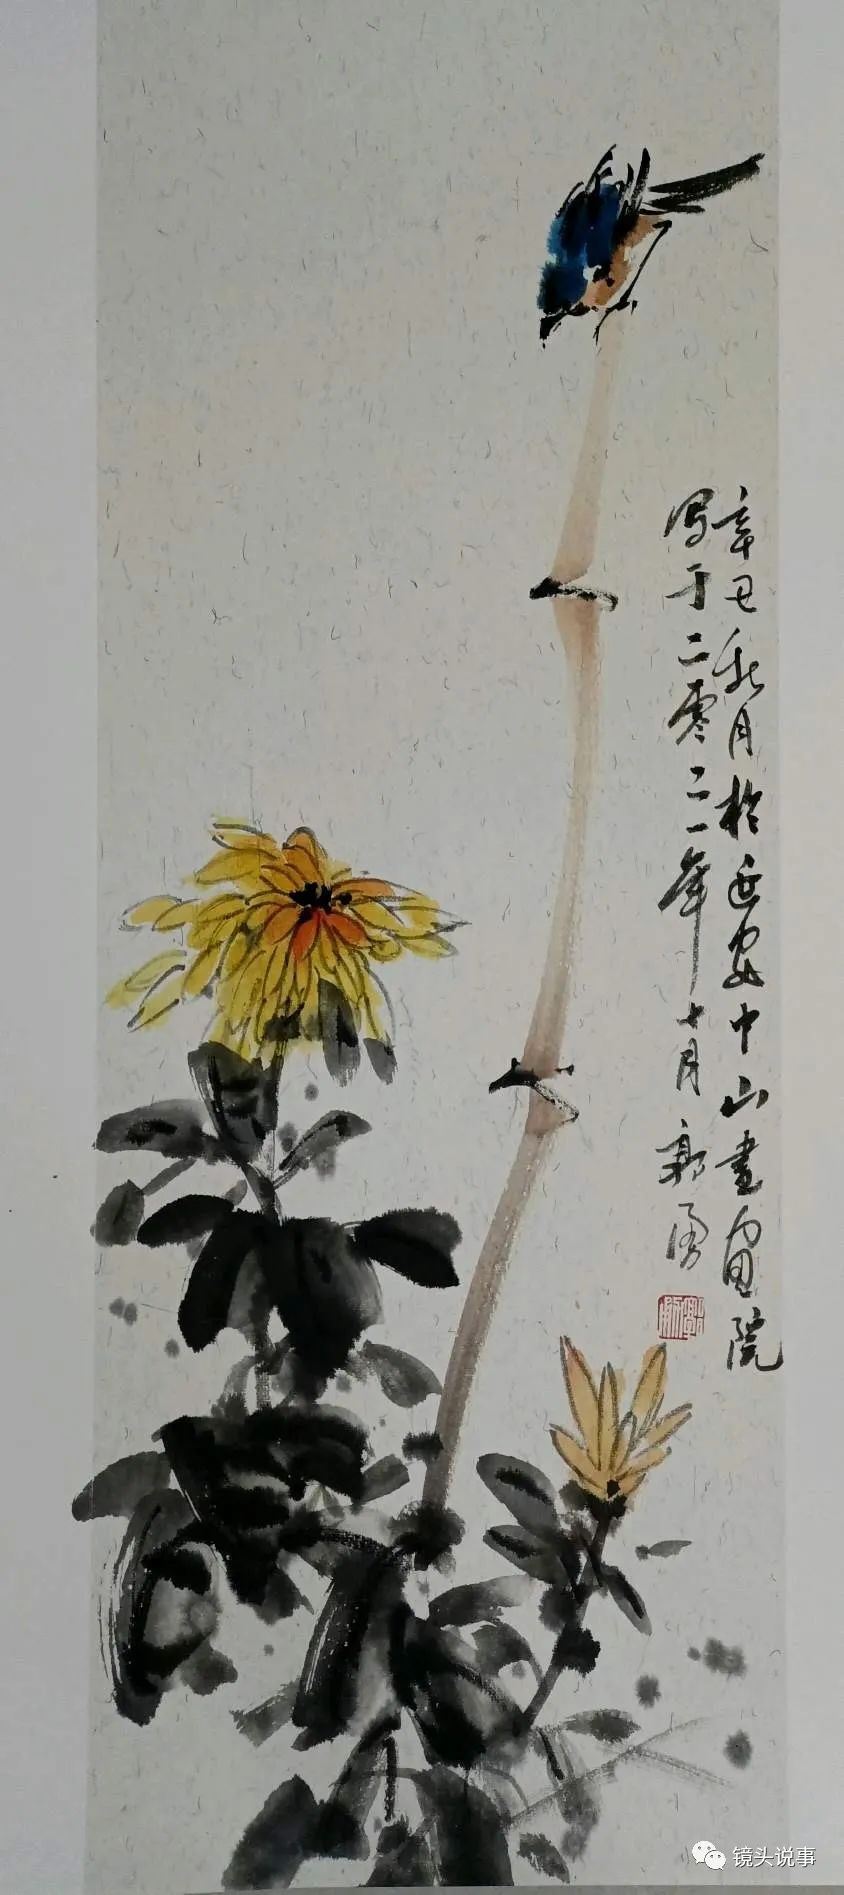 辛丑秋月於安中山書画院
写于二零二一年七月 郭勇
镜头说事